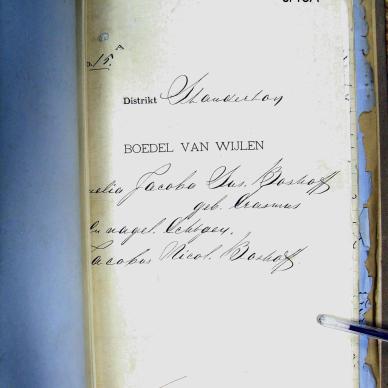 Distrikt Standerton
BOEDEL VAN WIJLEN
nelia Jacoba Sus. Boshoff
geb. Erasmus
en nagel. Echtgen.
Jacobus Nicol. Boshoff.